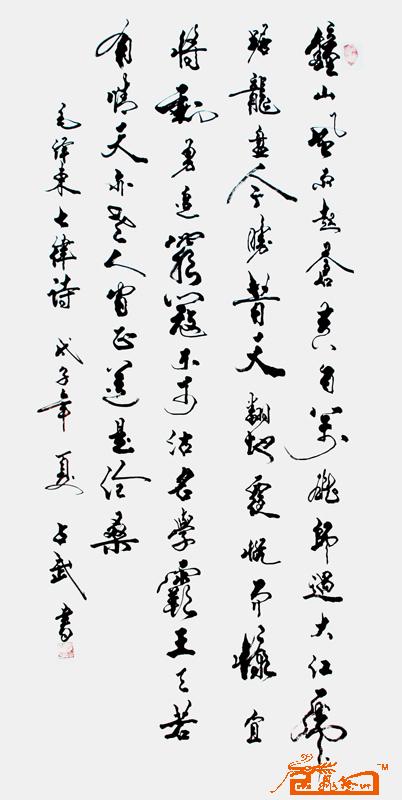 鐘山风雨起蒼黄百萬雄師過大江虎
踞龍盘今勝昔天翻地覆慨而慷宜
将剩勇追窮寇不可沽名學霸王天若
有情天亦老人间正道是沧桑
毛泽東七律诗 戊子年夏 占武書